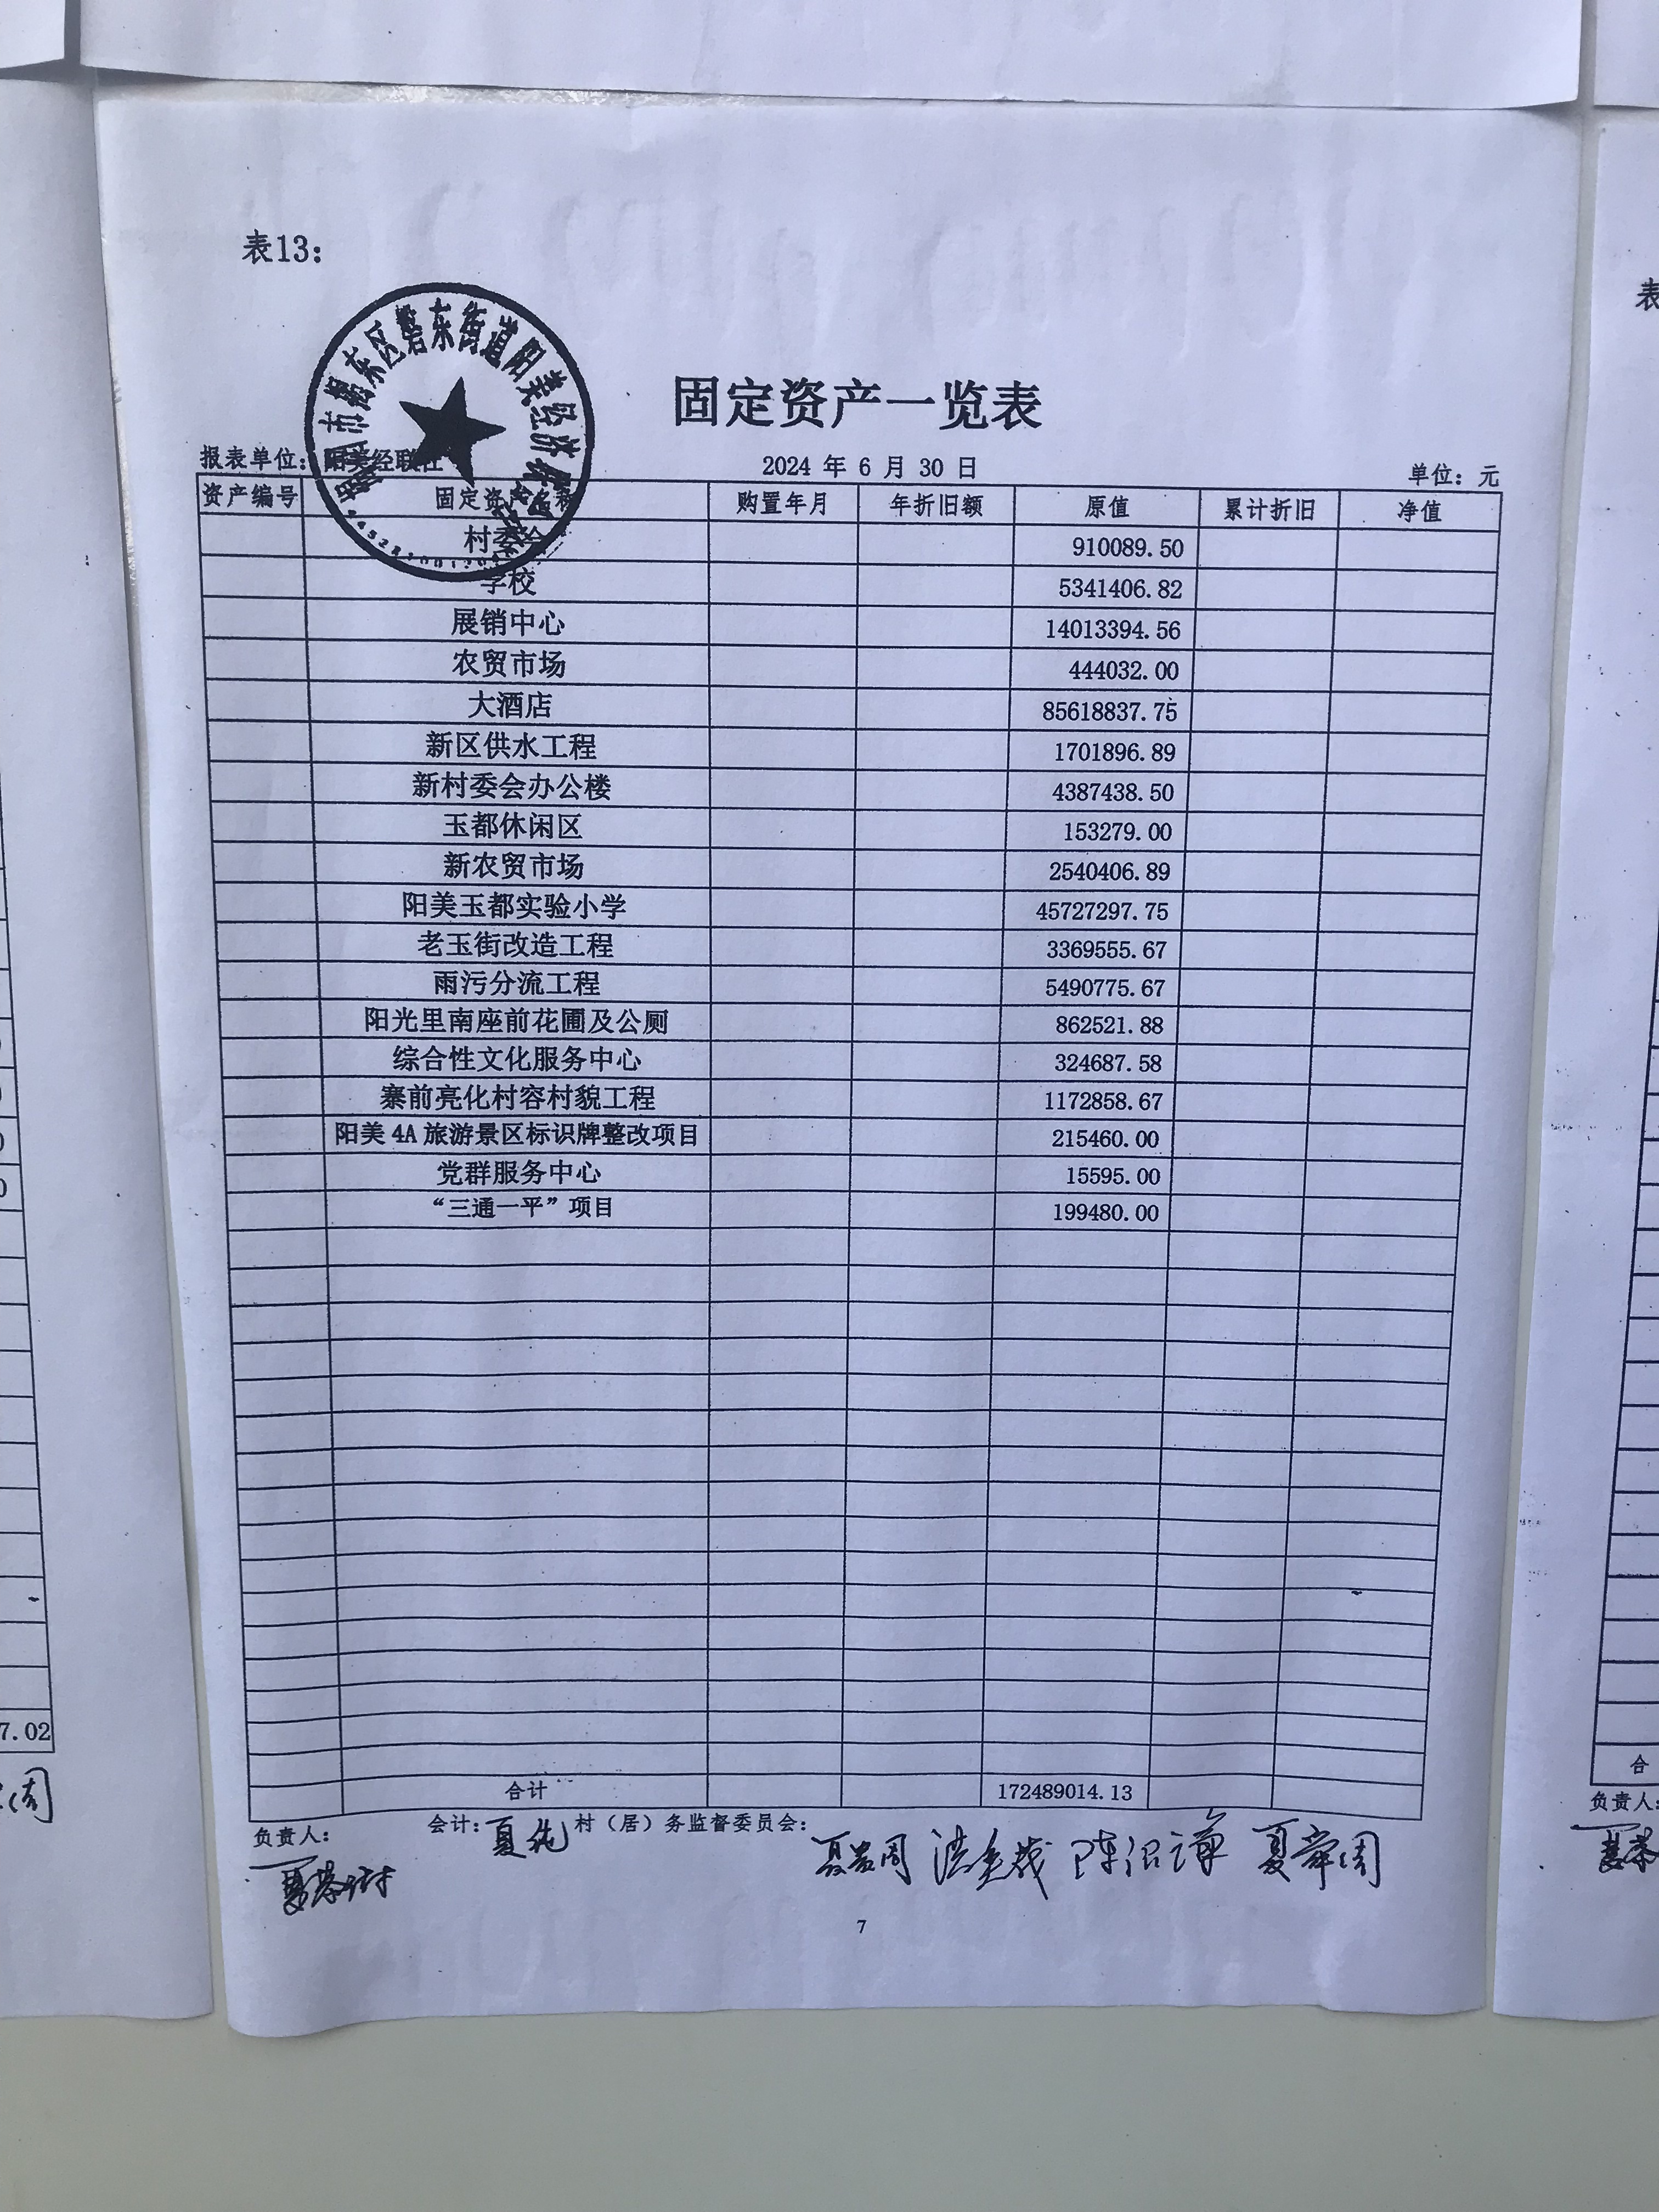 表13：
揭阳市揭东区磐东街道阳美经济联合社
固定资产一览表
报表单位：阳美经联社 2024 年 6 月 30 日 单位：元
资产编号 固定资产名称 购置年月 年折旧额 原值 累计折旧 净值
村委会 910089.50
学校 5341406.82
展销中心 14013394.56
农贸市场 444032.00
大酒店 85618837.75
新区供水工程 1701896.89
新村委会办公楼 4387438.50
玉都休闲区 153279.00
新农贸市场 2540406.89
阳美玉都实验小学 45727297.75
老玉街改造工程 3369555.67
雨污分流工程 5490775.67
阳光里南座前花圃及公厕 862521.88
综合性文化服务中心 324687.58
寨前亮化村容村貌工程 1172858.67
阳美 4A 旅游景区标识牌整改项目 215460.00
党群服务中心 15595.00
“三通一平”项目 199480.00
合计 172489014.13
负责人： 会计： 村（居）务监督委员会：
7
表
7.02
合
负责人：